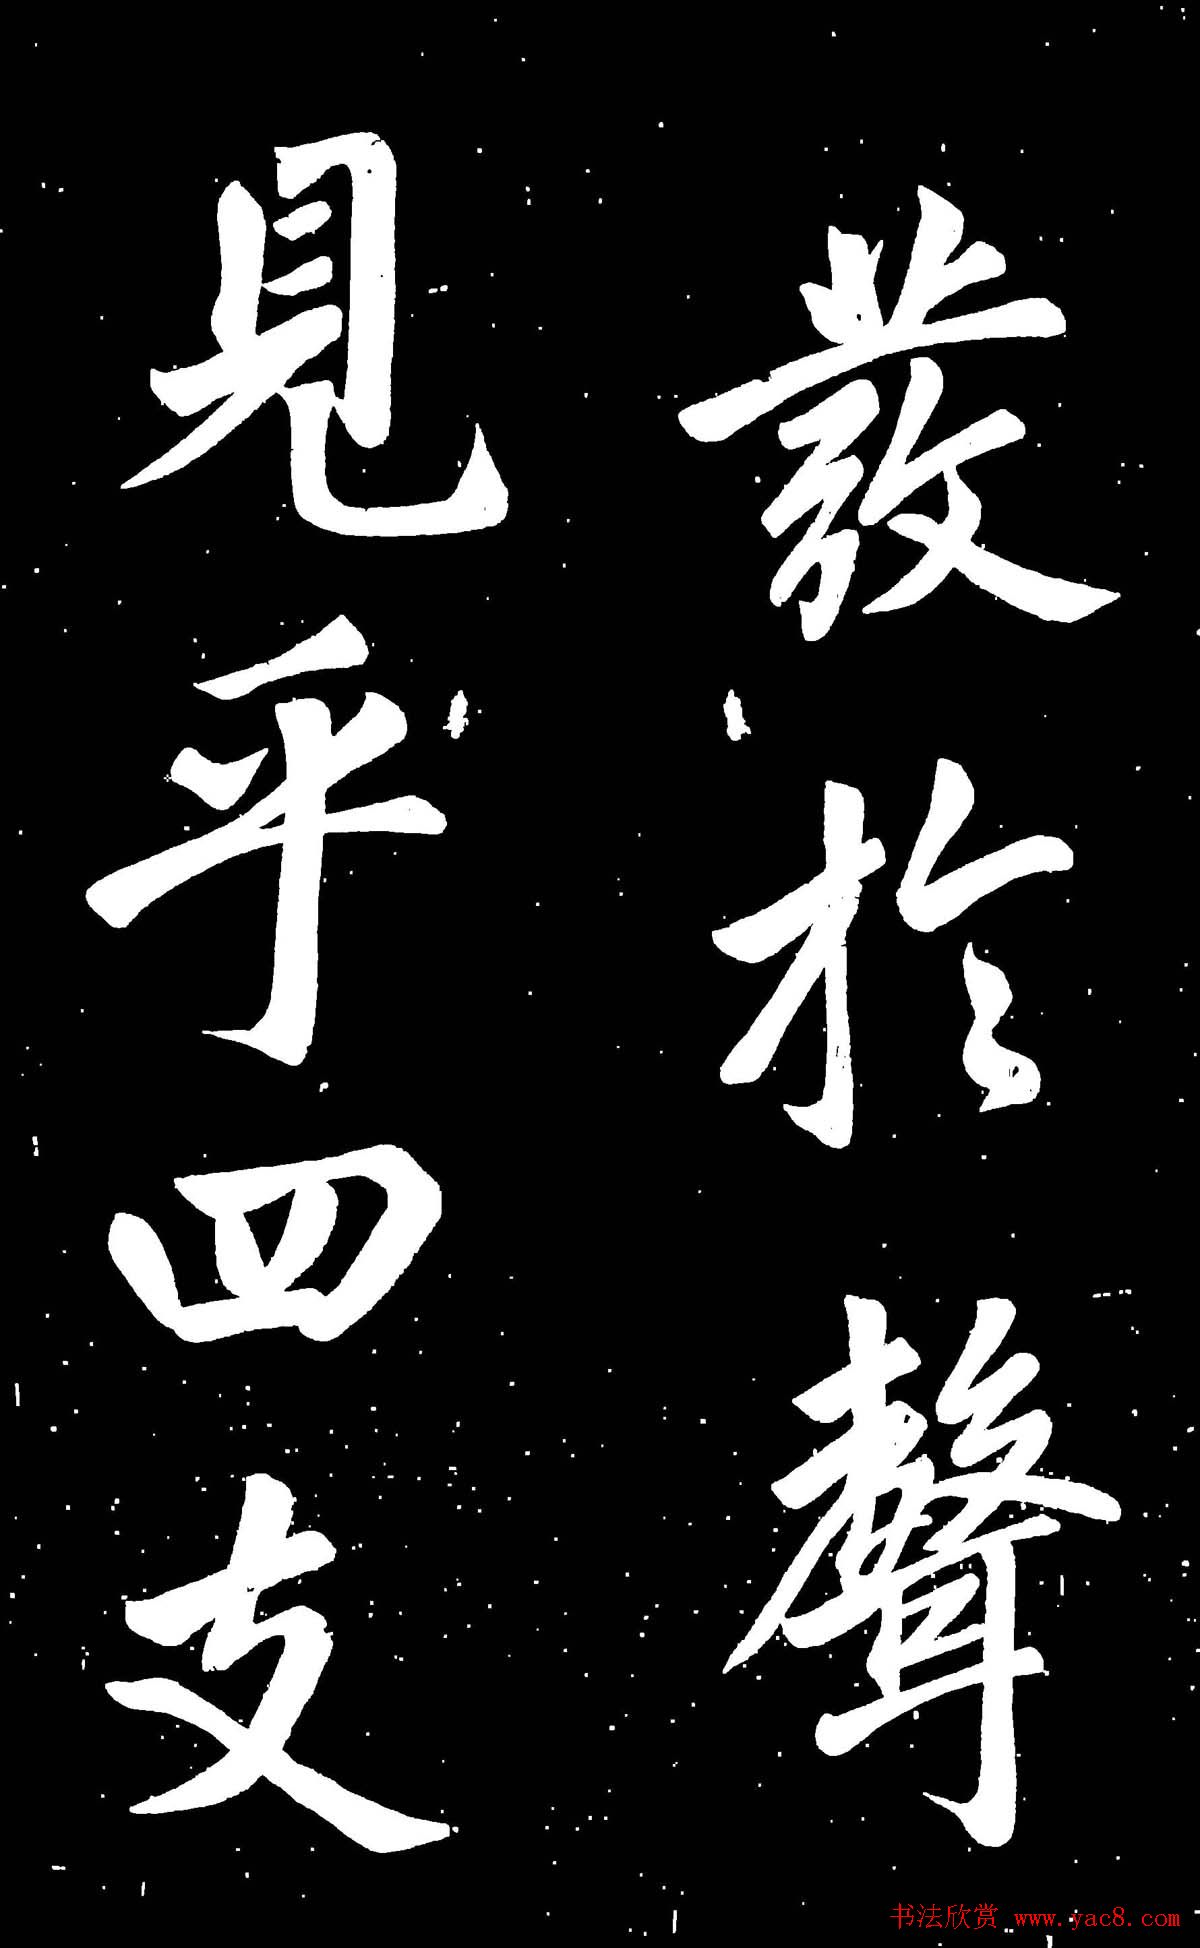 發於聲
見乎四支
书法欣赏 www.yac8.com